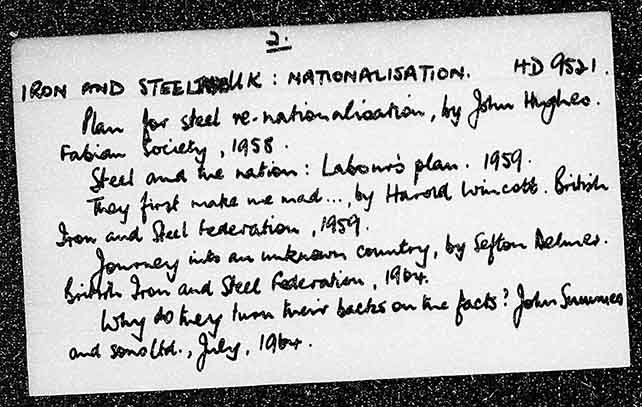 2.
IRON AND STEEL UK : NATIONALISATION. HD 9521.
Plan for steel re-nationalisation, by John Hughes.
Fabian Society, 1958.
Steel and the nation : Labour's plan. 1959.
They first make me mad..., by Harold Wincott. British
Iron and Steel Federation, 1959.
Journey into an unknown country, by Sefton Delmer.
British Iron and Steel Federation, 1964.
Why do they turn their backs on the facts? John Summers
and sons Ltd., July, 1964.